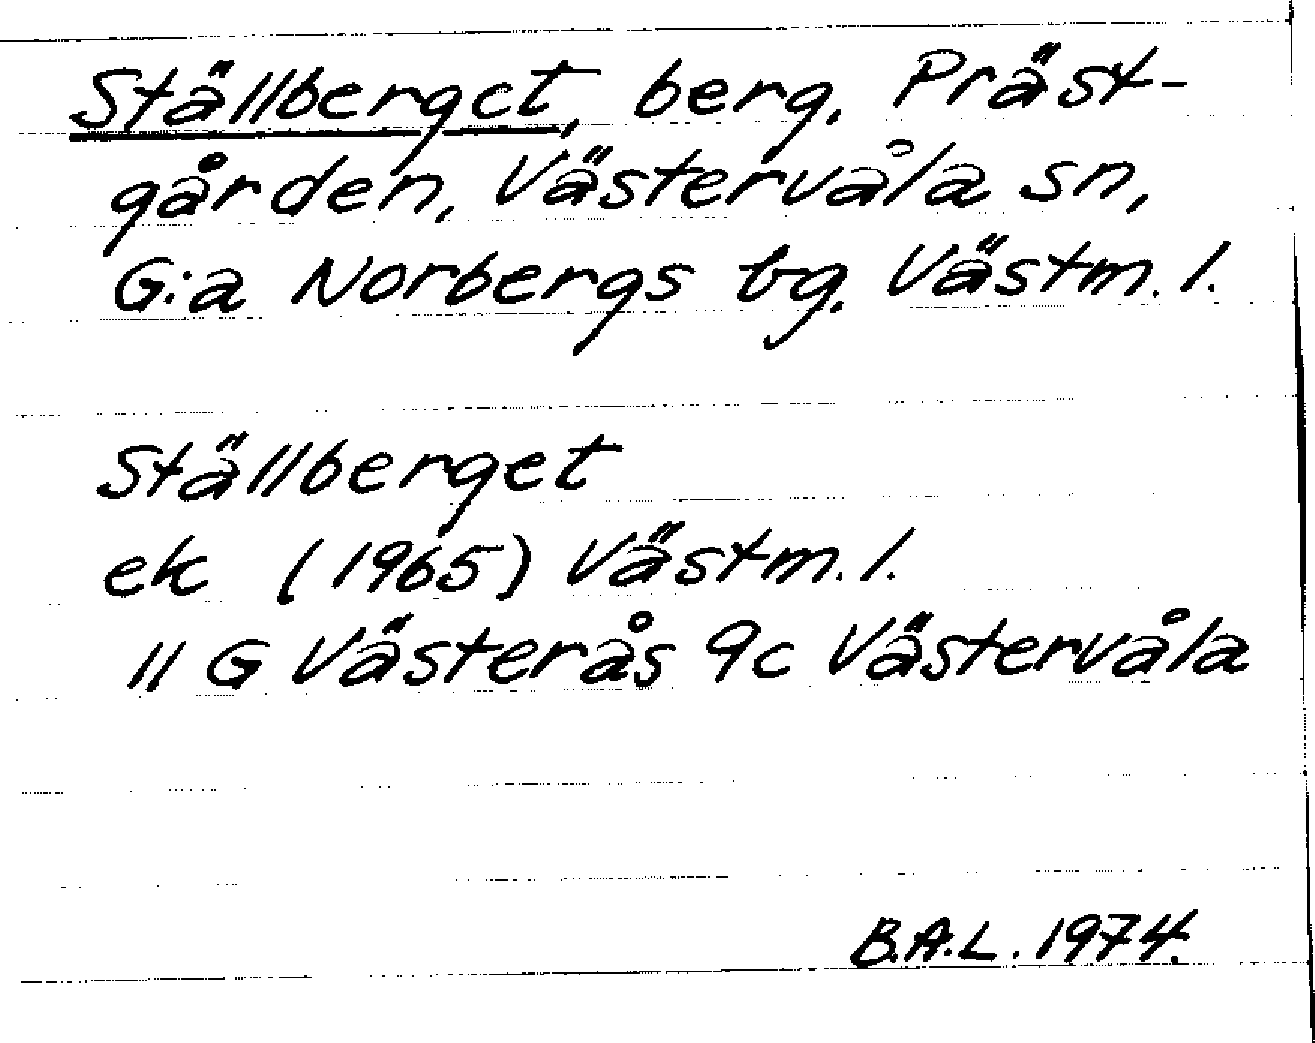 Ställberget, berg, Präst-
gården, Västervåla sn,
G:a Norbergs bg. Västm. l.
Ställberget
ek (1965) Västm. l.
11 G Västerås 9c Västervåla
B.A.L. 1974.